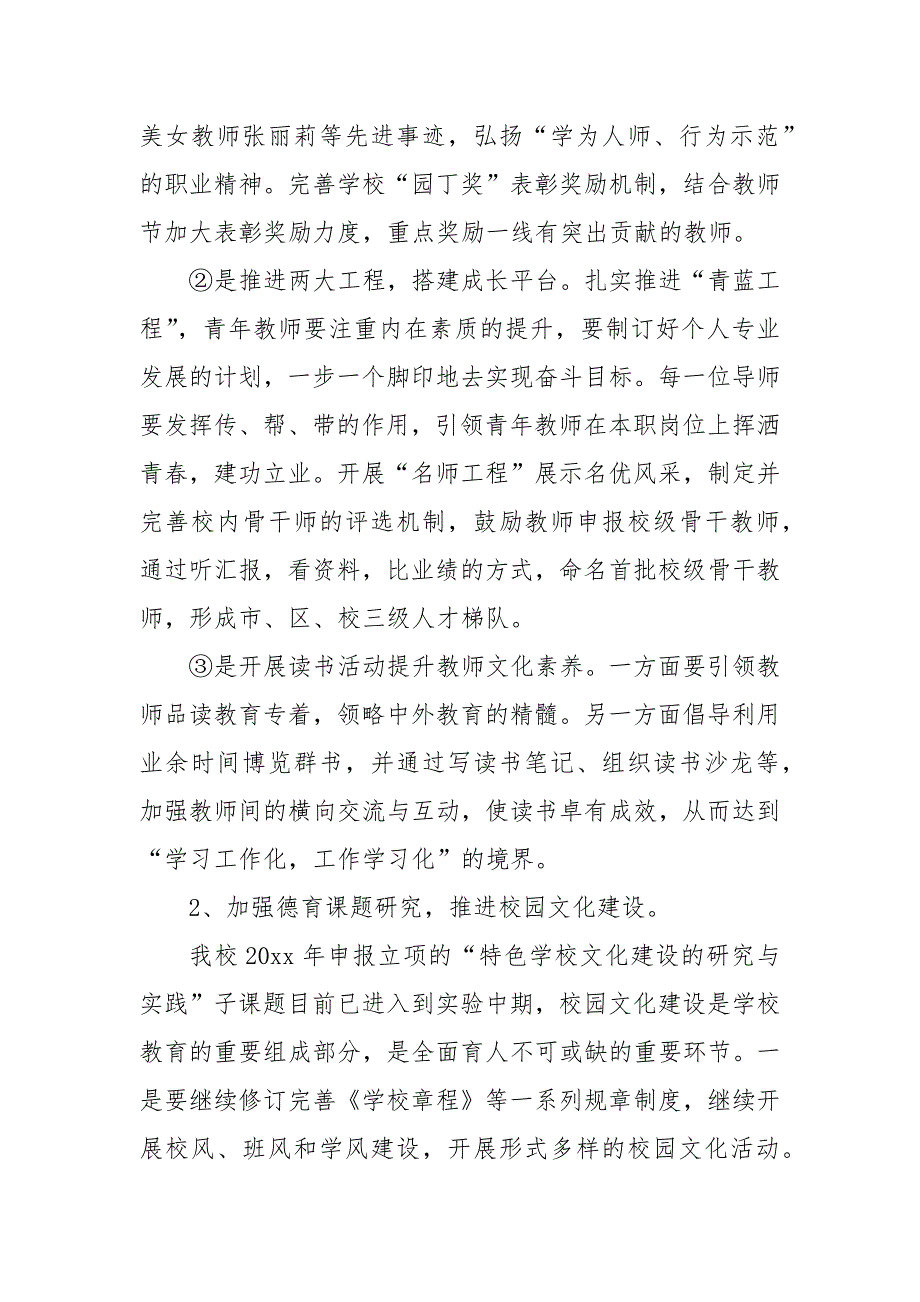 美女教师张丽莉等先进事迹，弘扬“学为人师、行为示范”
的职业精神。完善学校“园丁奖”表彰奖励机制，结合教师
节加大表彰奖励力度，重点奖励一线有突出贡献的教师。
②是推进两大工程，搭建成长平台。扎实推进“青蓝工
程”，青年教师要注重内在素质的提升，要制订好个人专业
发展的计划，一步一个脚印地去实现奋斗目标。每一位导师
要发挥传、帮、带的作用，引领青年教师在本职岗位上挥洒
青春，建功立业。开展“名师工程”展示名优风采，制定并
完善校内骨干师的评选机制，鼓励教师申报校级骨干教师，
通过听汇报，看资料，比业绩的方式，命名首批校级骨干教
师，形成市、区、校三级人才梯队。
③是开展读书活动提升教师文化素养。一方面要引领教
师品读教育专着，领略中外教育的精髓。另一方面倡导利用
业余时间博览群书，并通过写读书笔记、组织读书沙龙等，
加强教师间的横向交流与互动，使读书卓有成效，从而达到
“学习工作化，工作学习化”的境界。
2、加强德育课题研究，推进校园文化建设。
我校 20xx 年申报立项的“特色学校文化建设的研究与
实践”子课题目前已进入到实验中期，校园文化建设是学校
教育的重要组成部分，是全面育人不可或缺的重要环节。一
是要继续修订完善《学校章程》等一系列规章制度，继续开
展校风、班风和学风建设，开展形式多样的校园文化活动。